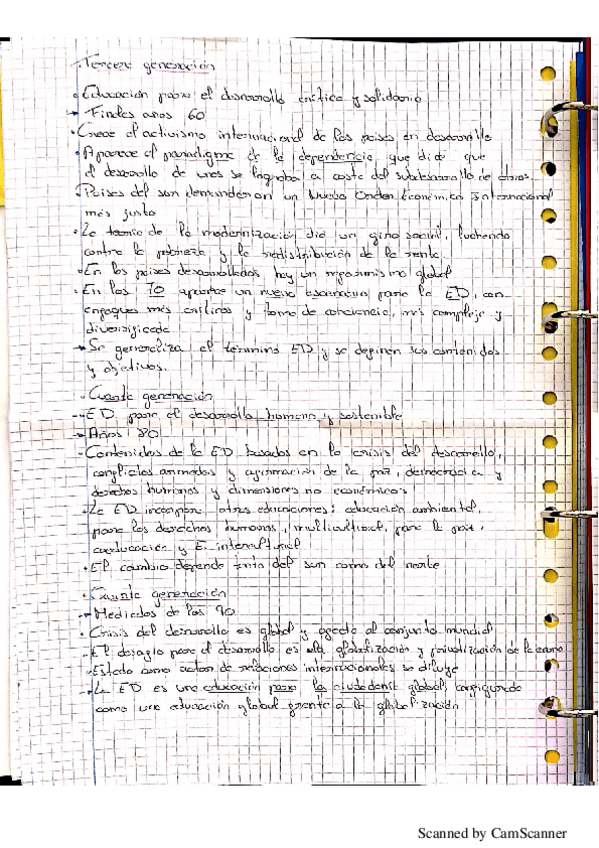 Tercera generación
• Educación para el desarrollo crítica y solidaria
→ Finales años 60
• Crece el activismo internacional de los países en desarrollo
• Aparece el paradigma de la dependencia, que dice que
el desarrollo de unos se lograba a costa del subdesarrollo de otros.
• Países del sur demandaron un Nuevo Orden Económico Internacional
más justo
• La teoría de la modernización dio un giro social, luchando
contra la pobreza y la redistribución de la renta.
• En los países desarrollados hay un global
• En los 70 un nuevo para la ED, con
enfoques más críticos y toma de conciencia, más compleja y
diversificada
→ Se generaliza el término ED y se definen sus contenidos
y objetivos.
- Cuarta generación
→ ED para el desarrollo humano y sostenible
→ Años 80
- Contenidos de la ED basados en la crisis del desarrollo,
conflictos armados y afirmación de la paz, democracia y
derechos humanos y dimensiones no económicas
• La ED incorpora otras educaciones: educación ambiental,
para los derechos humanos, multicultural, para la paz,
coeducación y E. intercultural
• El cambio depende tanto del sur como del norte
• Quinta generación
→ Mediados de los 90
• Crisis del desarrollo es global y afecta al conjunto mundial
- El desafío para el desarrollo es la globalización y de la
- Estado como actor de relaciones internacionales se diluye
- La ED es una educación para la ciudadanía global, configurada
como una educación global frente a la globalización
Scanned by CamScanner